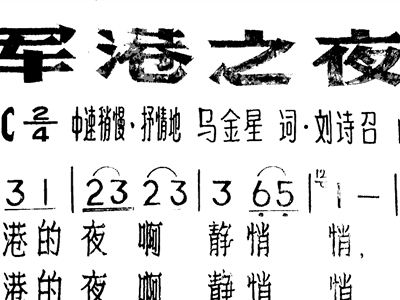 军港之夜
C 2/4 中速稍慢·抒情地 马金星 词·刘诗召
3 1 | 2 3 2 3 | 3 6 5 | 1 — |
港的夜啊静悄悄,
港的夜啊静悄悄